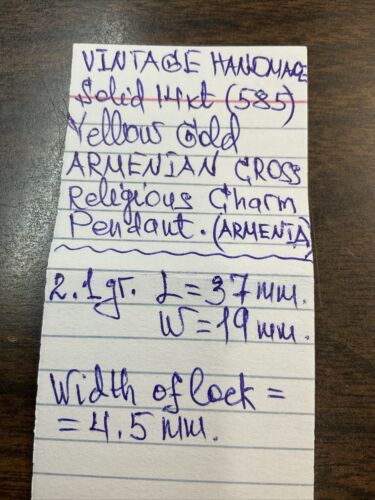 VINTAGE HANDMADE
Solid 14kt (585)
Yellow Gold
ARMENIAN CROSS
Religious Charm
Pendant. (ARMENIA)
2.1gr. L = 37 mm.
W = 19 mm.
Width of lock =
= 4.5 mm.